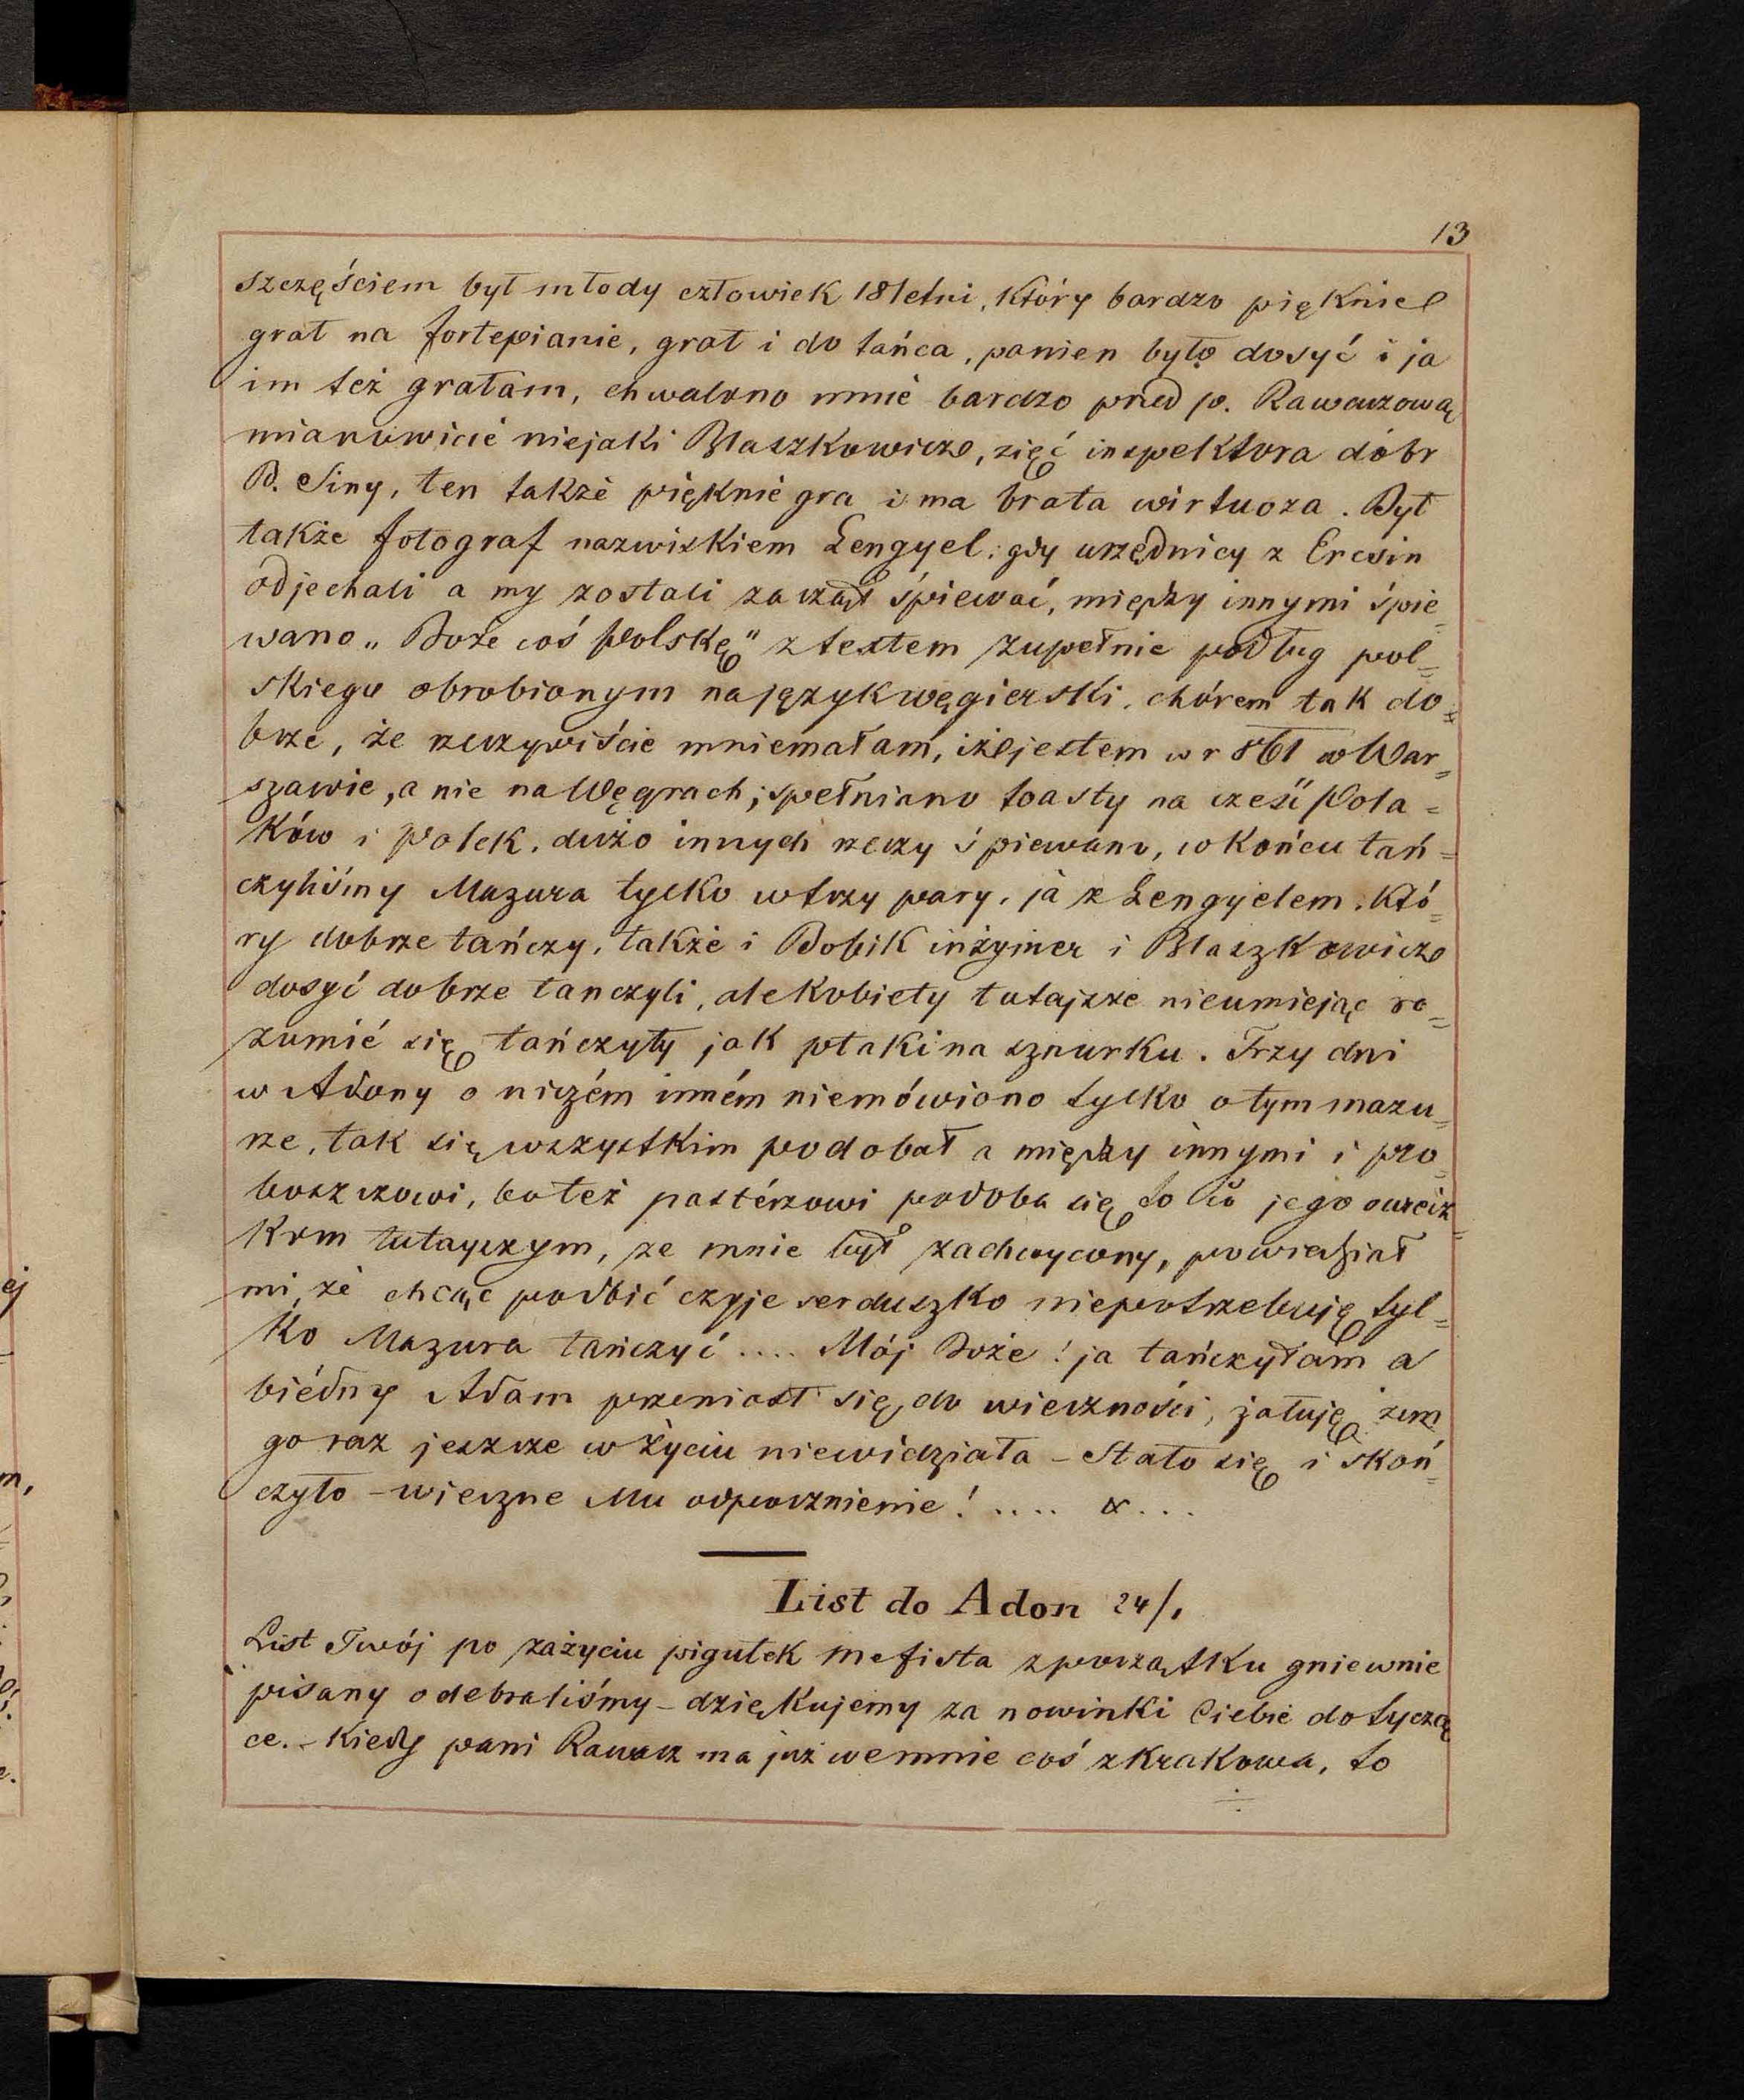 13
szczęściem był młody człowiek 18letni, który bardzo pięknie
grał na fortepianie, grał i do tańca, panien było dosyć i ja
im też grałam, chwalono mnie bardzo przed p. Rawaczową
mianowicie niejaki Blaszkowicz, zięć inspektora dóbr
B. Siny, ten także pięknie gra i ma brata wirtuoza. Był
także fotograf nazwiskiem Lengyel; gdy urzędnicy z Ercsin
odjechali a my zostali zaczął śpiewać, między innymi śpie=
wano „Boże coś Polskę" z textem zupełnie podług pol=
skiego obrobionym na język węgierski, chórem tak do=
brze, że rzeczywiście mniemałam, iż jestem w r 861 w War=
szawie, a nie na Węgrach; spełniano toasty na cześć Pola=
ków i Polek, dużo innych rzeczy śpiewano, w końcu tań=
czyliśmy Mazura tylko w trzy pary, ja z Lengyelem, któ=
ry dobrze tańczy, także i Bobik inżyinier i Blaszkowicz
dosyć dobrze tanczyli, ale kobiety tutajsze nieumiejąc ro=
zumić się tańczyły jak ptaki na sznurku. Trzy dni
w Adony o niczém inném niemówiono tylko o tym mazu=
rze, tak się wszystkim podobał a między innymi i pro=
boszczowi, bo też pastérzowi podoba się to co jego owcecz=
kom tutajszym, ze mnie był zachwycony, powiedział
mi, że chcąc podbić czyje serduszko niepotrzebuję tyl=
ko Mazura tańczyć .... Mój Boże! ja tańczyłam a
biédny Adam przeniosł się do wieczności, żałuję żem
go raz jeszcze w życiu niewidziała – Stało się i skoń=
czyło – wieczne Mu odpocznienie! .... & ...
List do Adon 24/1
List Twój po zażyciu pigułek Mefista z początku gniewnie
pisany odebraliśmy – dziękujemy za nowinki Ciebie dotyczą
ce. – Kiedy pani Rawacz ma już we mnie coś z Krakowa, to